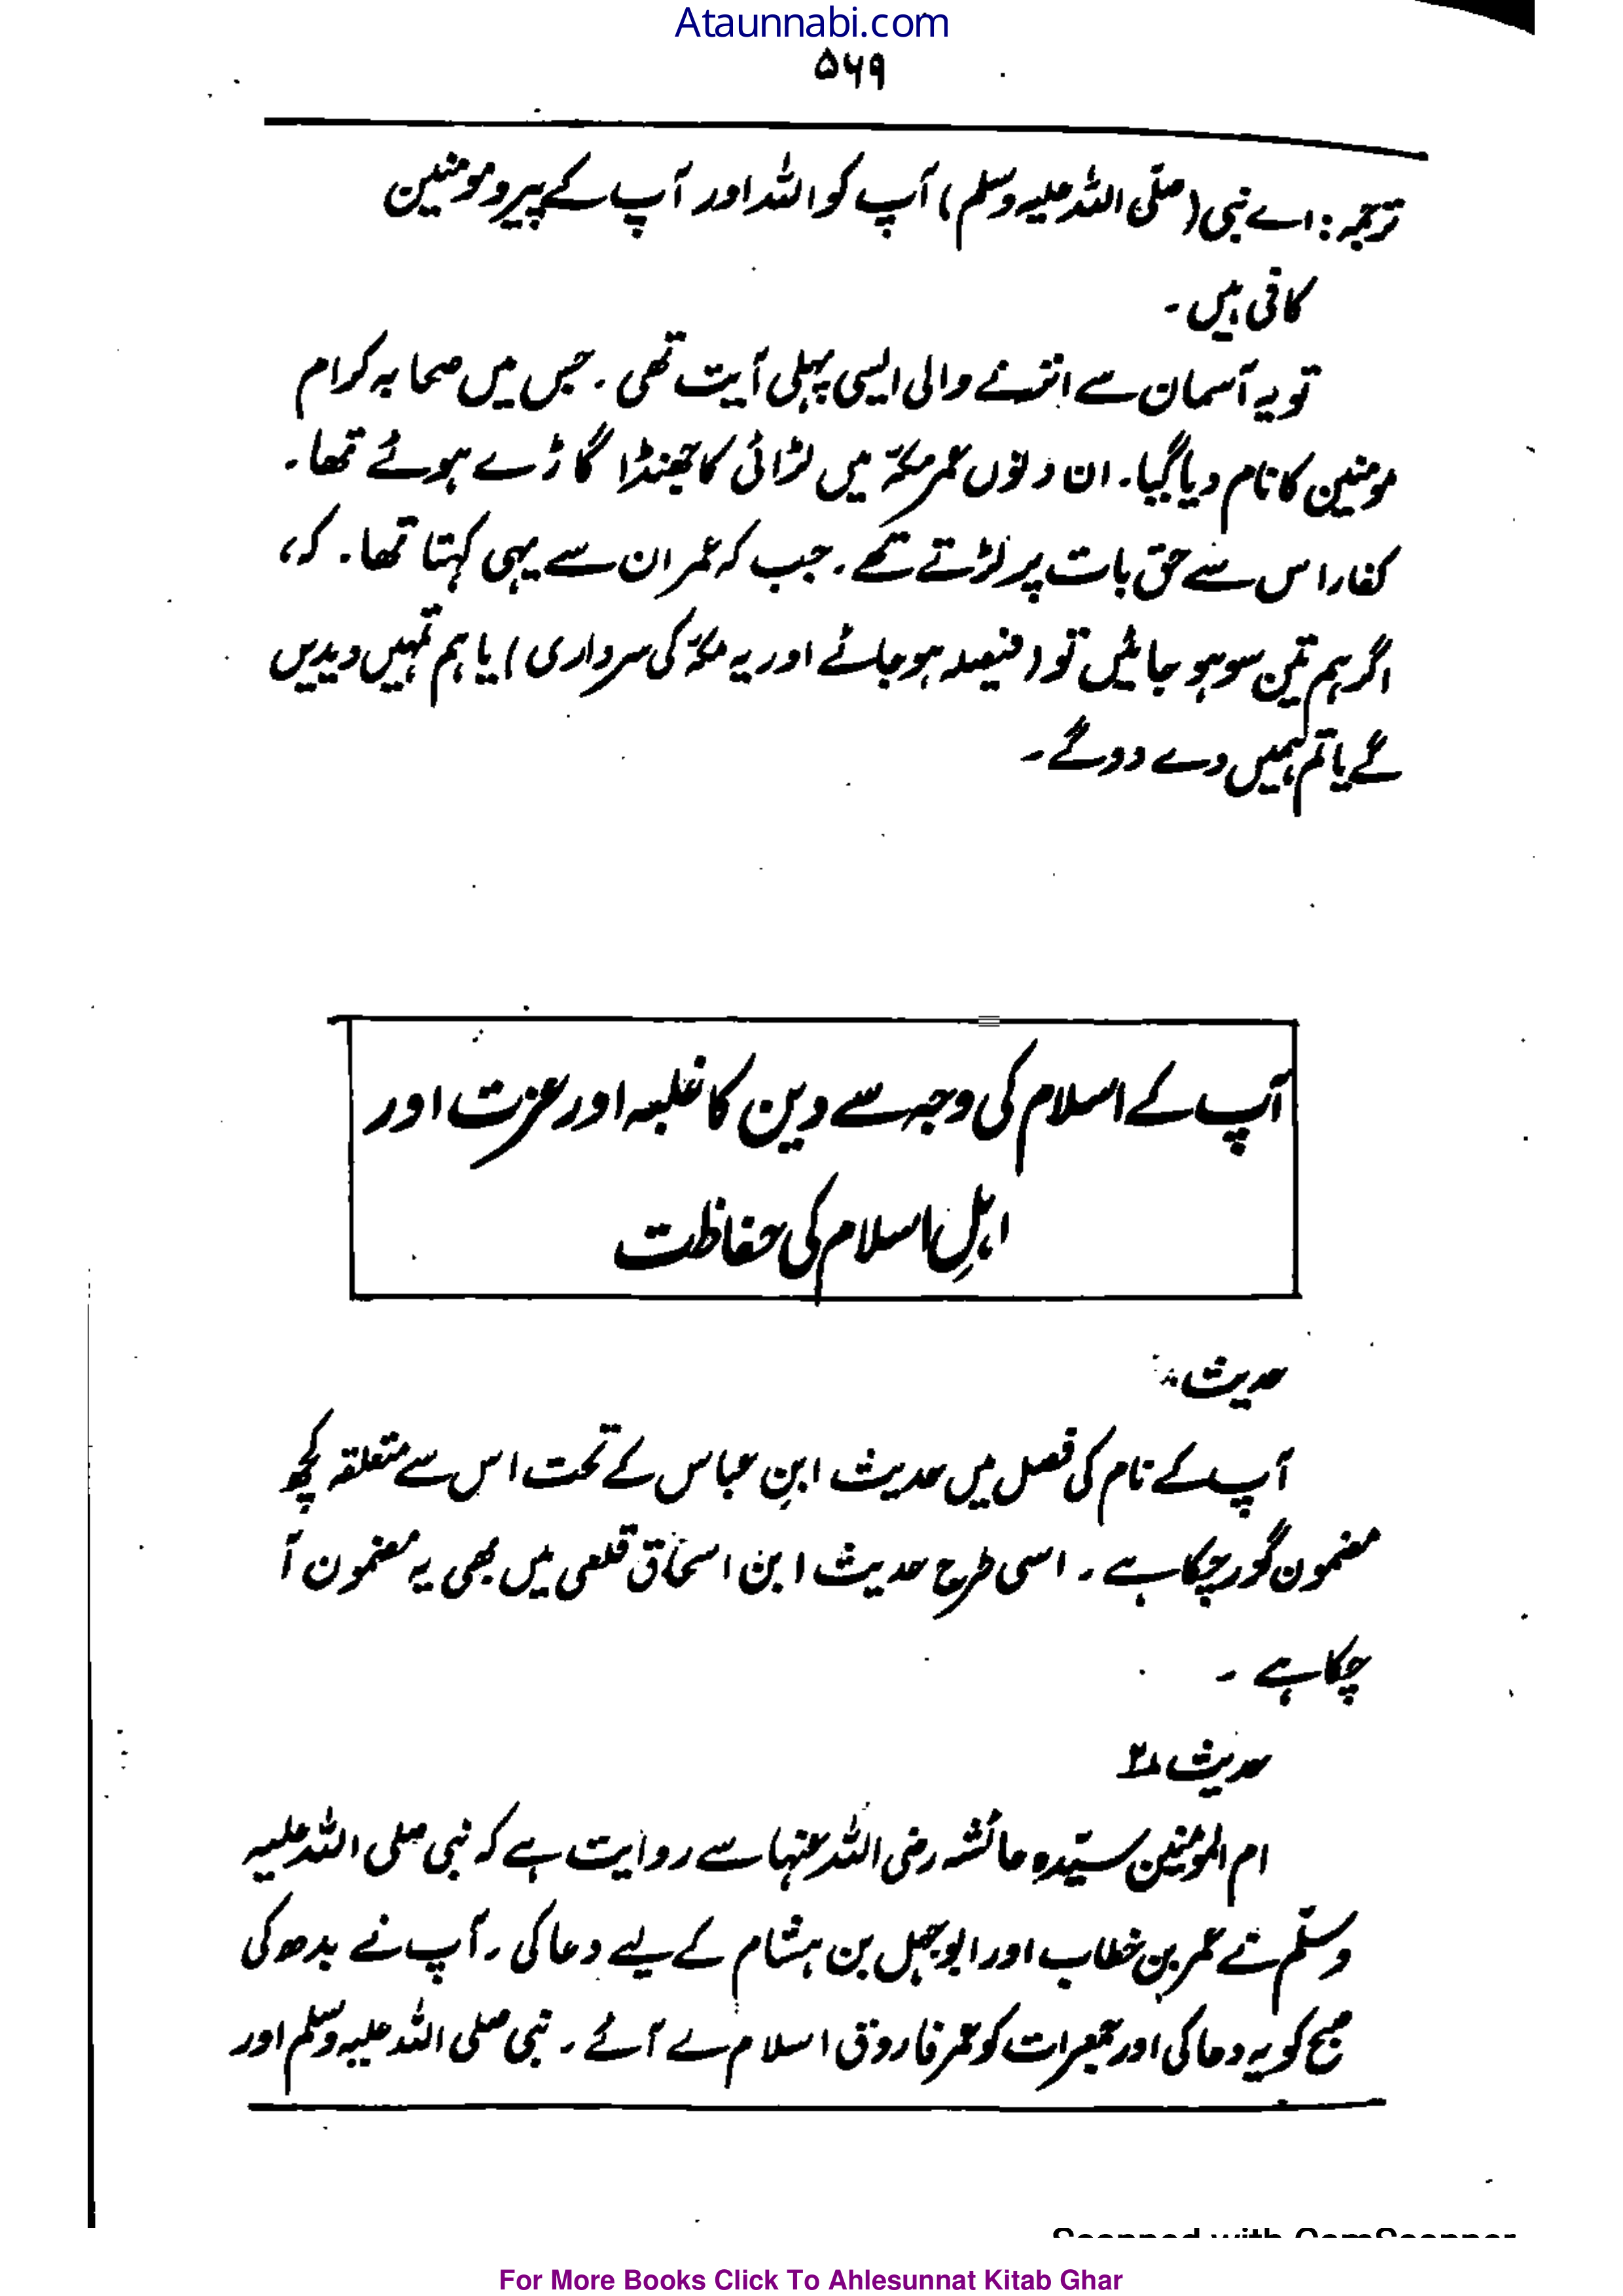 Ataunnabi.com
۵۶۹
ترجمہ: اے نبی (صلّی اللہ علیہ وسلم) آپ کو اللہ اور آپ کے پیرو مومنین
کافی ہیں ۔
تو یہ آسمان سے اترنے والی ایسی پہلی آیت تھی ۔ جس میں صحابہ کرام
مومنین کا نام دیا گیا۔ ان دنوں عمر مکہّ میں لڑائی کا جھنڈا گاڑے ہوئے تھا۔
کفار اس سے حق بات پر لڑتے تھے ۔ جب کہ عمر ان سے یہی کہتا تھا۔ کہ،
اگر ہم تین سو ہو جائیں تو (فیصلہ ہو جائے اور یہ مکہّ کی سرداری) یا ہم تمہیں دیدیں
گے یا تم ہمیں دے دو گے ۔
آپ کے اسلام کی وجہ سے دین کا غلبہ اور عزت اور
اہلِ اسلام کی حفاظت
حدیث
آپ کے نام کی فصل میں حدیث ابنِ عباس کے تحت اس سے متعلقہ کچھ
مضمون گزر چکا ہے ۔ اسی طرح حدیث ابن اسحٰاق قلعی میں بھی یہ مضمون آ
چکا ہے ۔
حدیث ۲
ام المومنین سیّدہ عائشہ رضی اللہ عنہا سے روایت ہے کہ نبی صلی اللہ علیہ
وسلّم نے عمر بن خطاب اور ابوجہل بن ہشام کے لیے دعا کی ۔ آپ نے بدھ کی
صبح کو یہ دعا کی اور جمعرات کو عمر فاروق اسلام لے آئے ۔ نبی صلی اللہ علیہ وسلم اور
Scanned with CamScanner
For More Books Click To Ahlesunnat Kitab Ghar